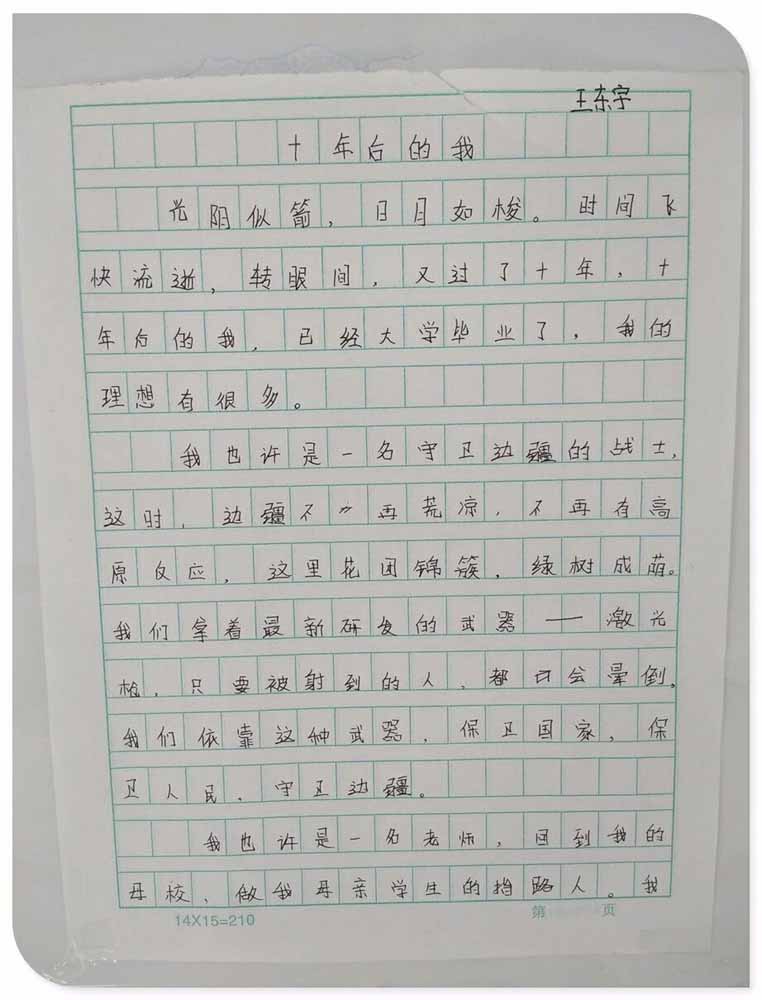 王东宇
十年后的我
光阴似箭，日月如梭。时间飞
快流逝，转眼间，又过了十年，十
年后的我，已经大学毕业了，我的
理想有很多。
我也许是一名守卫边疆的战士，
这时，边疆不再荒凉，不再有高
原反应，这里花团锦簇，绿树成荫。
我们拿着最新研发的武器——激光
枪，只要被射到的人，都会晕倒。
我们依靠这种武器，保卫国家，保
卫人民，守卫边疆。
我也许是一名老师，回到我的
母校，做我母亲学生的指路人。我
14X15=210
第 页